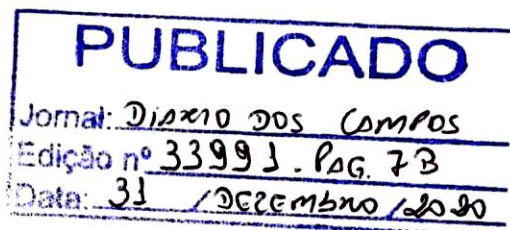 PUBLICADO
Jornal: DIARIO DOS CAMPOS
Edição nº 33991. PAG. 7B
Data: 31 / DEZEMBRO / 2020